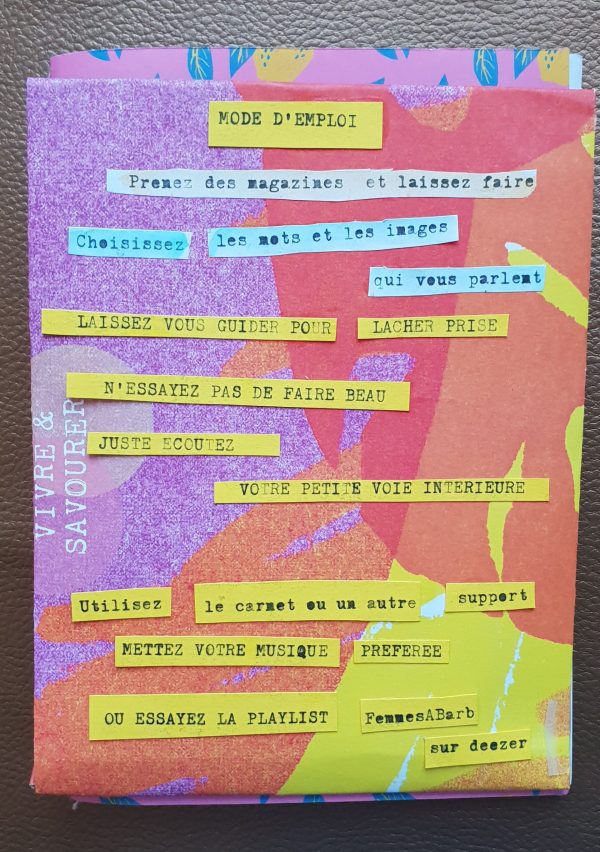 MODE D'EMPLOI
Prenez des magazines et laissez faire
Choisissez les mots et les images
qui vous parlent
LAISSEZ VOUS GUIDER POUR LACHER PRISE
N'ESSAYEZ PAS DE FAIRE BEAU
JUSTE ECOUTEZ
VOTRE PETITE VOIE INTERIEURE
VIVRE &
SAVOURER
Utilisez le carnet ou un autre support
METTEZ VOTRE MUSIQUE PREFEREE
OU ESSAYEZ LA PLAYLIST FemmesABarb
sur deezer